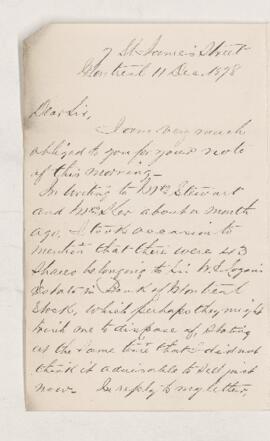 7 St. James's Street
Montreal 11 Dec. 1878
Dear Sir,
I am very much
obliged to you for your note
of this morning_
In writing to Mrs Stewart
and Mr Ker about a month
ago, I took occasion to
mention that there were 43
Shares belonging to Sir W. E. Logan's
Estate in Bank of Montreal
Stock, which perhaps they might
wish me to dispose of, stating
at the same time that I did not
think it advisable to sell just
now_ In reply to my letter,